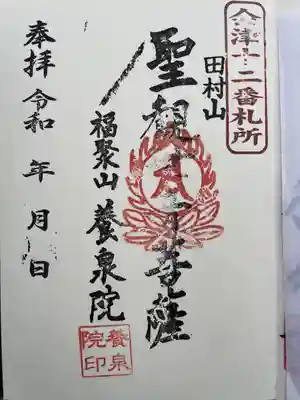 会津十二番札所
田村山
聖観世音菩薩
福聚山 養泉院
養泉
院印
奉拝 令和 年 月 日